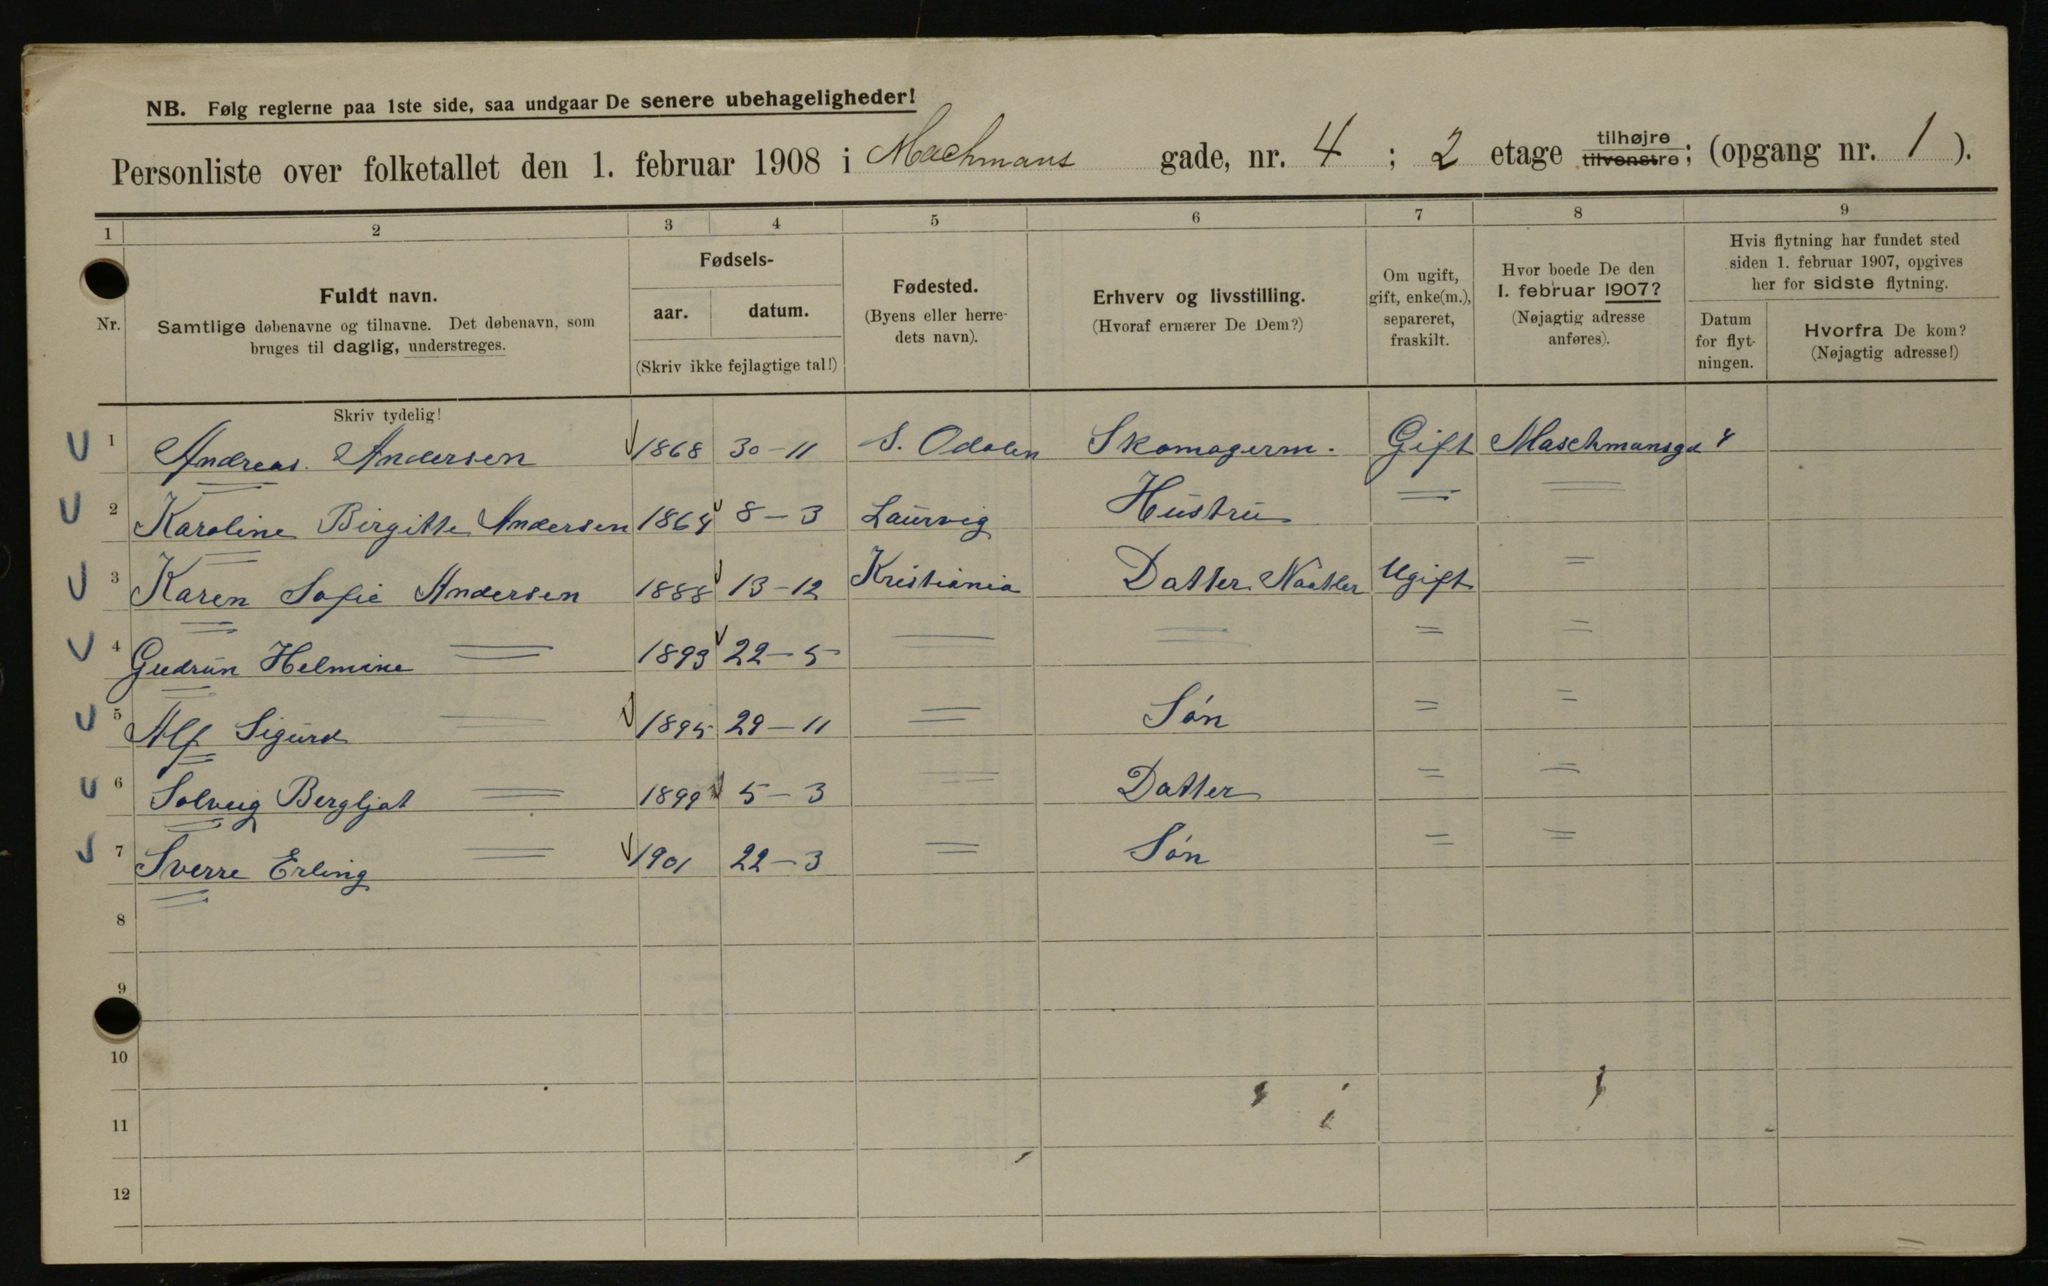 NB. Følg reglerne paa 1ste side, saa undgaar De senere ubehageligheder!
Personliste over folketallet den 1. februar 1908 i Machmans gade, nr. 4 ; 2 etage tilhøjre tilvenstre; (opgang nr. 1 ).
1 2 3 4 5 6 7 8 9
Nr.
Fuldt navn.
Samtlige døbenavne og tilnavne. Det døbenavn, som
bruges til daglig, understreges.
Fødsels-
aar. datum.
(Skriv ikke fejlagtige tal!)
Fødested.
(Byens eller herre-
dets navn).
Erhverv og livsstilling.
(Hvoraf ernærer De Dem?)
Om ugift,
gift, enke(m.),
separeret,
fraskilt.
Hvor boede De den
1. februar 1907?
(Nøjagtig adresse
anføres).
Hvis flytning har fundet sted
siden 1. februar 1907, opgives
her for sidste flytning.
Datum
for flyt-
ningen.
Hvorfra De kom?
(Nøjagtig adresse!)
Skriv tydelig!
1 Andreas Andersen 1868 30-11 S. Odalen Skomagerm. Gift Maschmansgd 4
2 Karoline Birgitte Andersen 1864 8-3 Laurvig Hustru = =
3 Karen Sofie Andersen 1888 13-12 Kristiania Datter Naatler Ugift =
4 Gudrun Helmine = 1893 22-5 = = = =
5 Alf Sigurd = 1895 29-11 = Søn = =
6 Solveig Bergljot = 1899 5-3 = Datter = =
7 Sverre Erling = 1901 22-3 = Søn = =
8
9
10
11
12